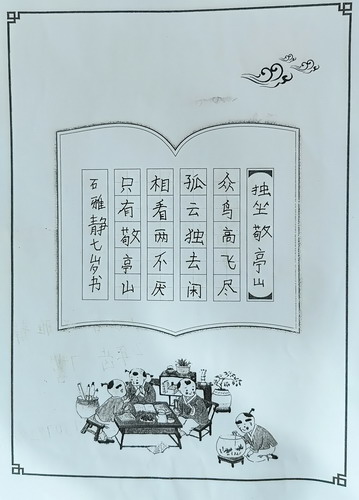 独坐敬亭山
众鸟高飞尽
孤云独去闲
相看两不厌
只有敬亭山
石雅静七岁书